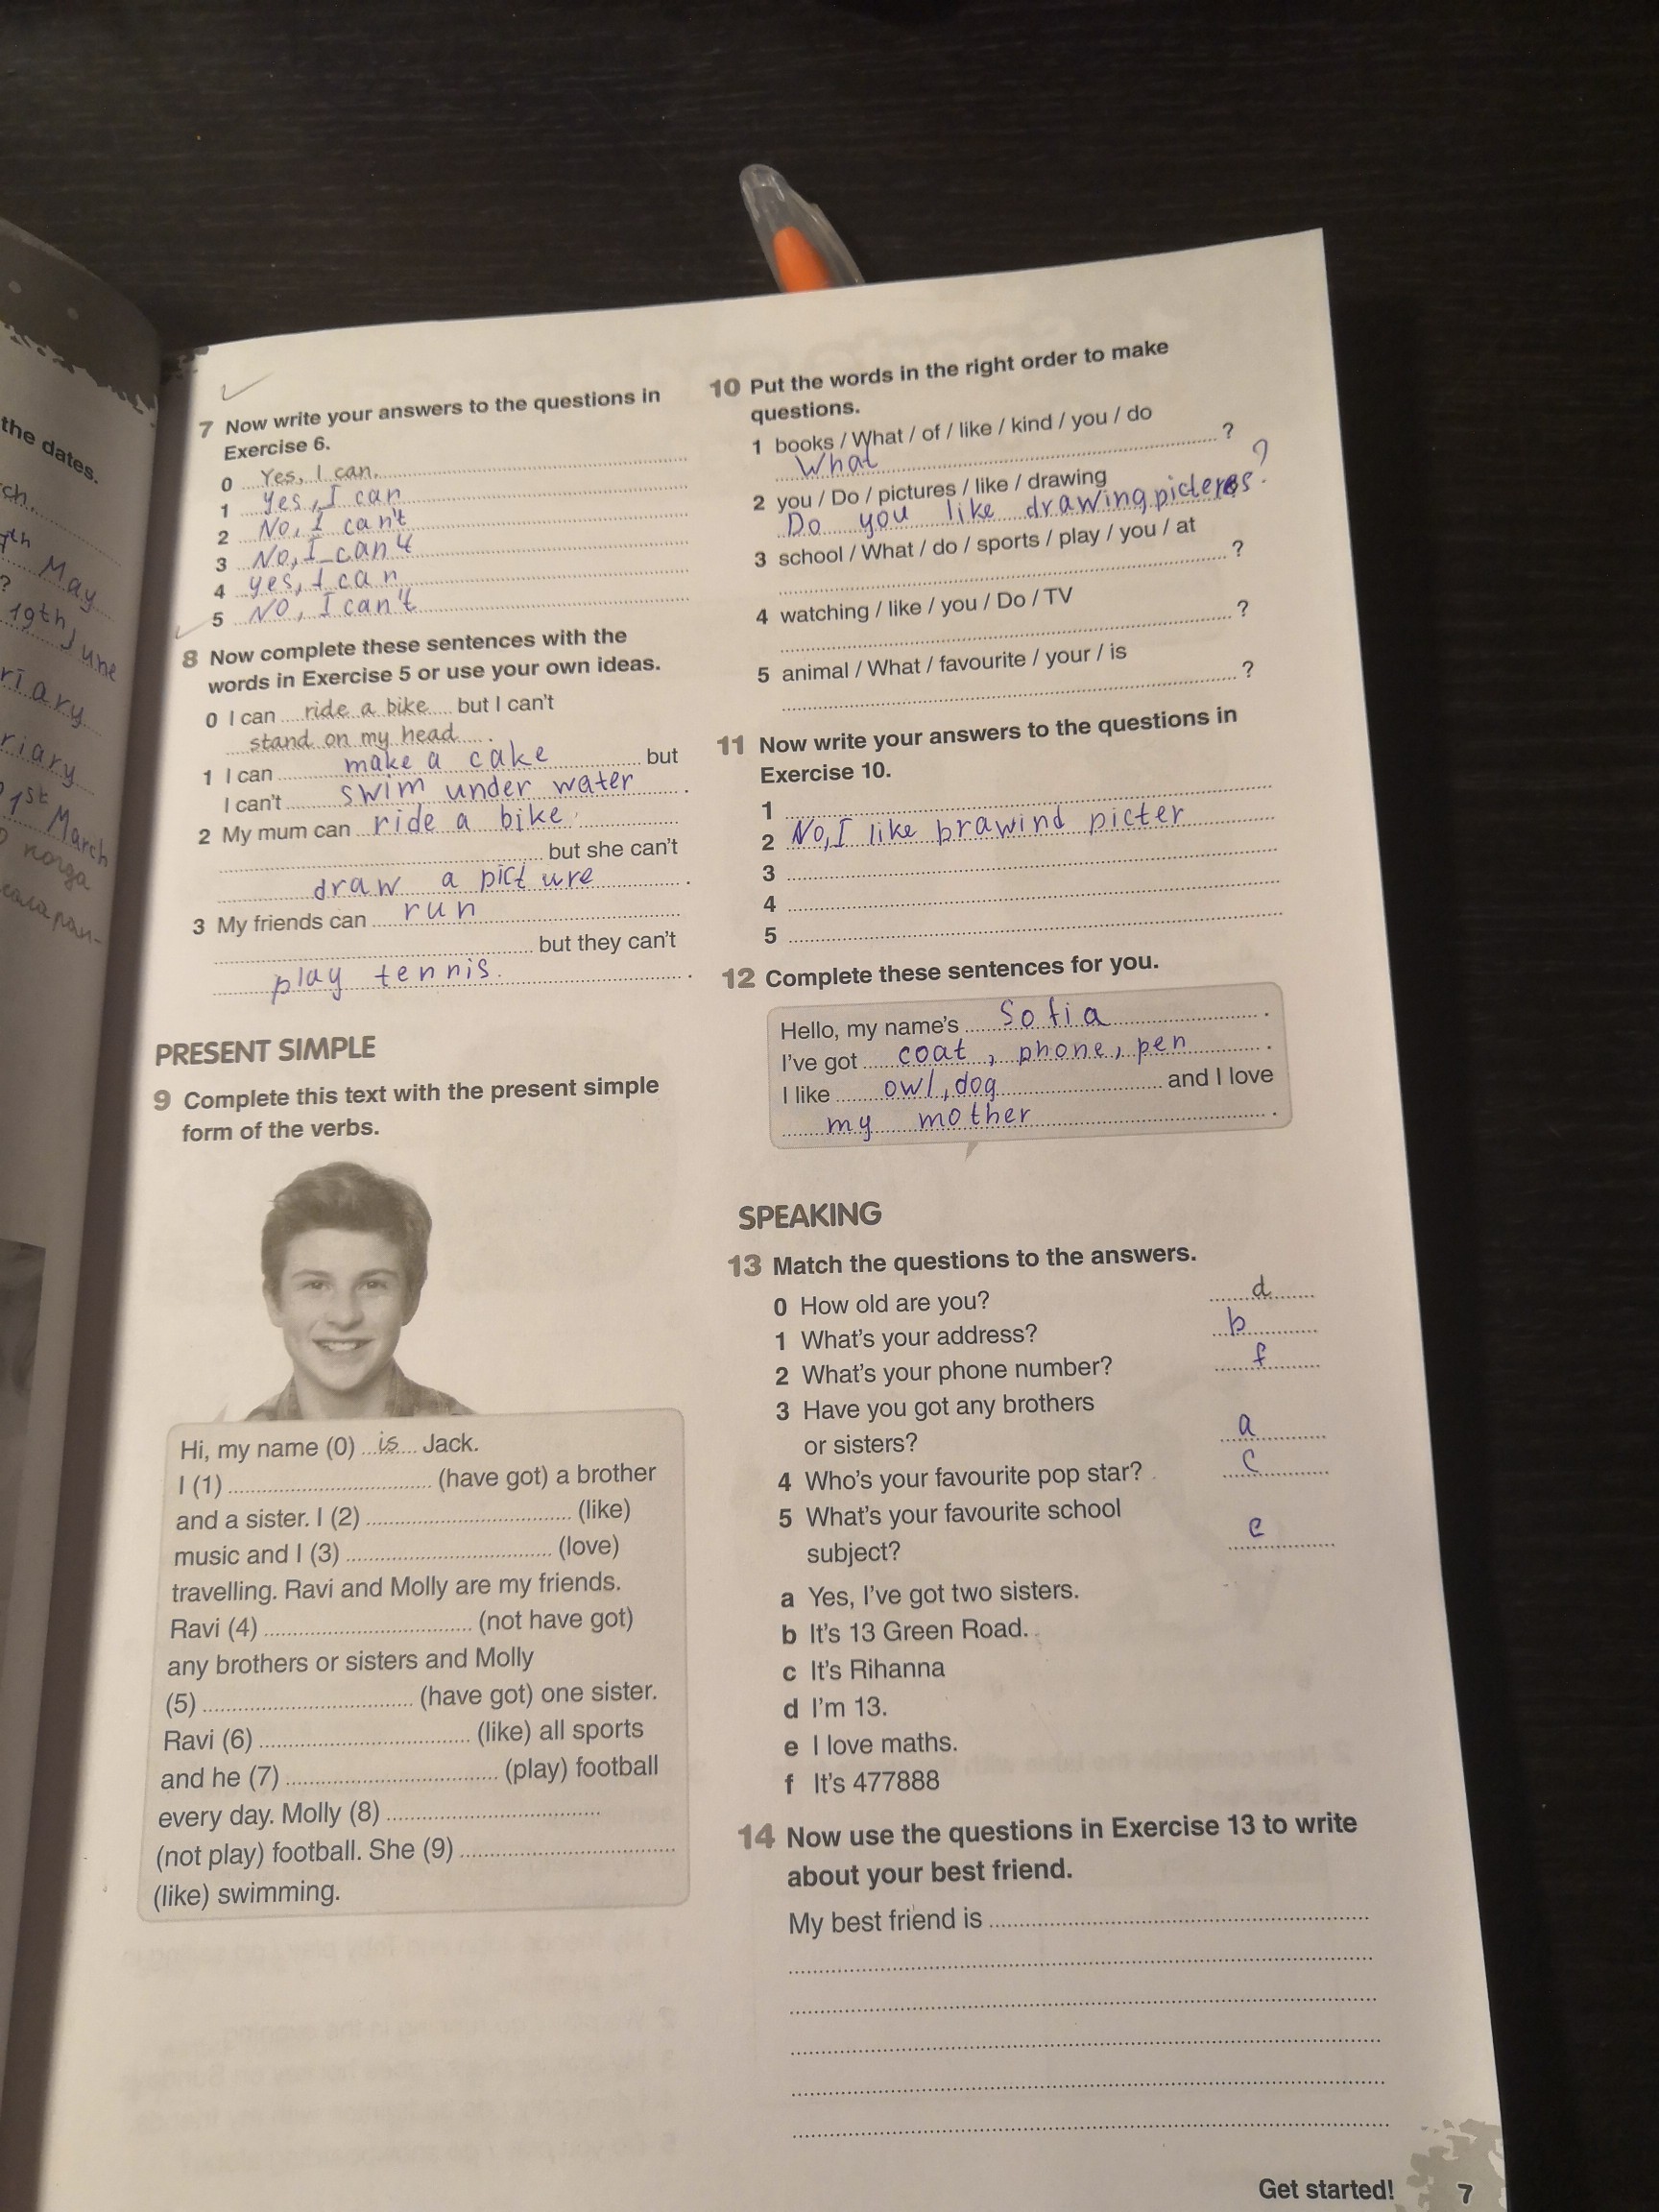 the dates.
ch,
7th May
?
19th June
riary
riary
1st March
7 Now write your answers to the questions in
Exercise 6.
0 Yes, I can.
1 Yes, I can
2 No, I can't
3 No, I can't
4 yes, I can
5 NO, I can't
8 Now complete these sentences with the
words in Exercise 5 or use your own ideas.
0 I can ride a bike but I can't
stand on my head .
1 I can make a cake but
I can't swim under water .
2 My mum can ride a bike
but she can't
draw a picture .
3 My friends can run
but they can't
play tennis. .
PRESENT SIMPLE
9 Complete this text with the present simple
form of the verbs.
Hi, my name (0) is Jack.
I (1) (have got) a brother
and a sister. I (2) (like)
music and I (3) (love)
travelling. Ravi and Molly are my friends.
Ravi (4) (not have got)
any brothers or sisters and Molly
(5) (have got) one sister.
Ravi (6) (like) all sports
and he (7) (play) football
every day. Molly (8)
(not play) football. She (9)
(like) swimming.
10 Put the words in the right order to make
questions.
1 books / What / of / like / kind / you / do
What ?
2 you / Do / pictures / like / drawing
Do you like drawing picteres. ?
3 school / What / do / sports / play / you / at
?
4 watching / like / you / Do / TV
?
5 animal / What / favourite / your / is
?
11 Now write your answers to the questions in
Exercise 10.
1
2 No, I like brawind picter
3
4
5
12 Complete these sentences for you.
Hello, my name's Sofia .
I've got coat, phone, pen .
I like owl, dog and I love
my mother .
SPEAKING
13 Match the questions to the answers.
0 How old are you? d
1 What's your address? b
2 What's your phone number? f
3 Have you got any brothers
or sisters? a
4 Who's your favourite pop star? c
5 What's your favourite school
subject? e
a Yes, I've got two sisters.
b It's 13 Green Road.
c It's Rihanna
d I'm 13.
e I love maths.
f It's 477888
14 Now use the questions in Exercise 13 to write
about your best friend.
My best friend is
Get started! 7